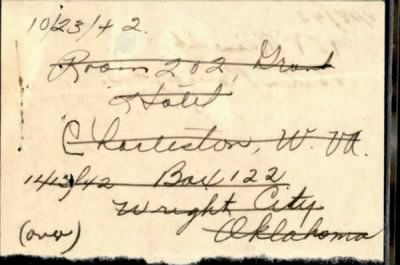 10/23/42.
Room 202, Grant
Hotel
Charleston, W. VA.
Box 122
Wright City
(over) Oklahoma